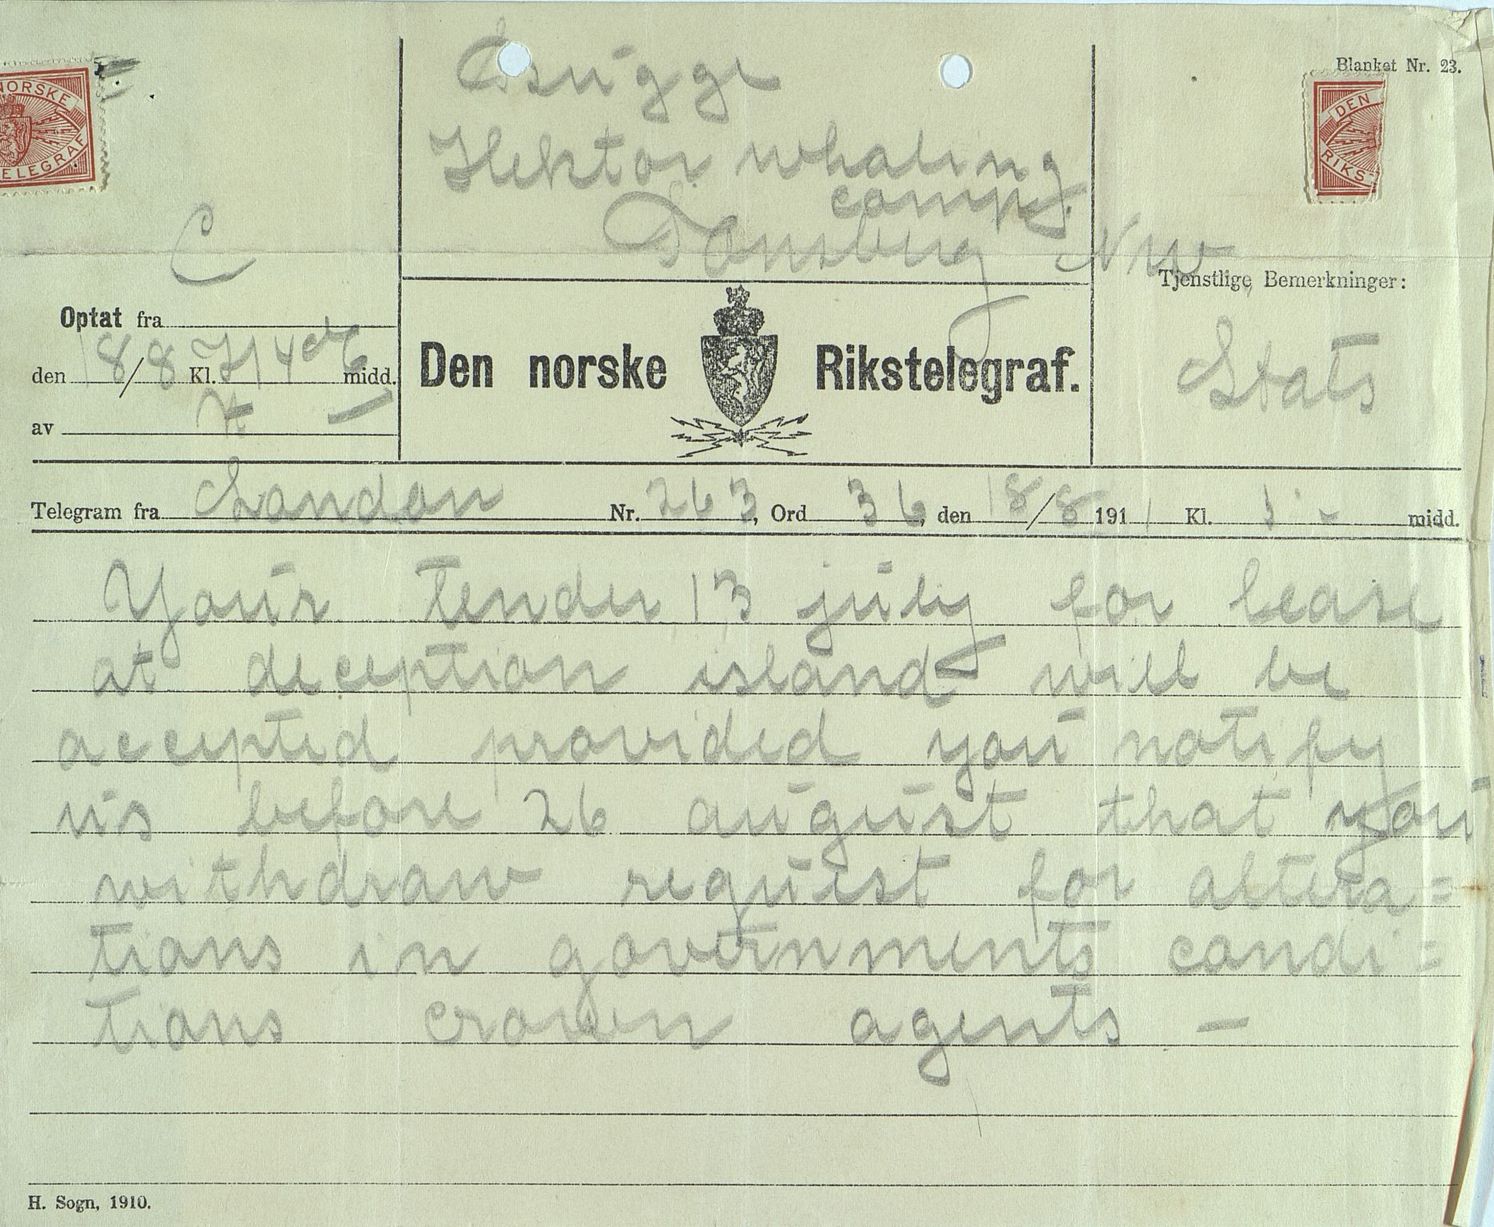 Bugge
Blanket Nr. 23.
NORSKE
TELEGRAF
DEN
RIKS-
Hektor whaling
comp.
Tönsberg Nrw
C
Tjenstlige Bemerkninger:
Optat fra
den 18/8 Kl. midd.
Den norske Rikstelegraf.
Stats
av
Telegram fra London Nr. 263, Ord 36, den 18/8 1911 Kl. 1 - midd.
Your tender 13 july for lease
at deception island will be
accepted provided you notify
us before 26 august that you
withdraw request for altera=
tions in governments condi=
tions crown agents —
H. Sogn, 1910.